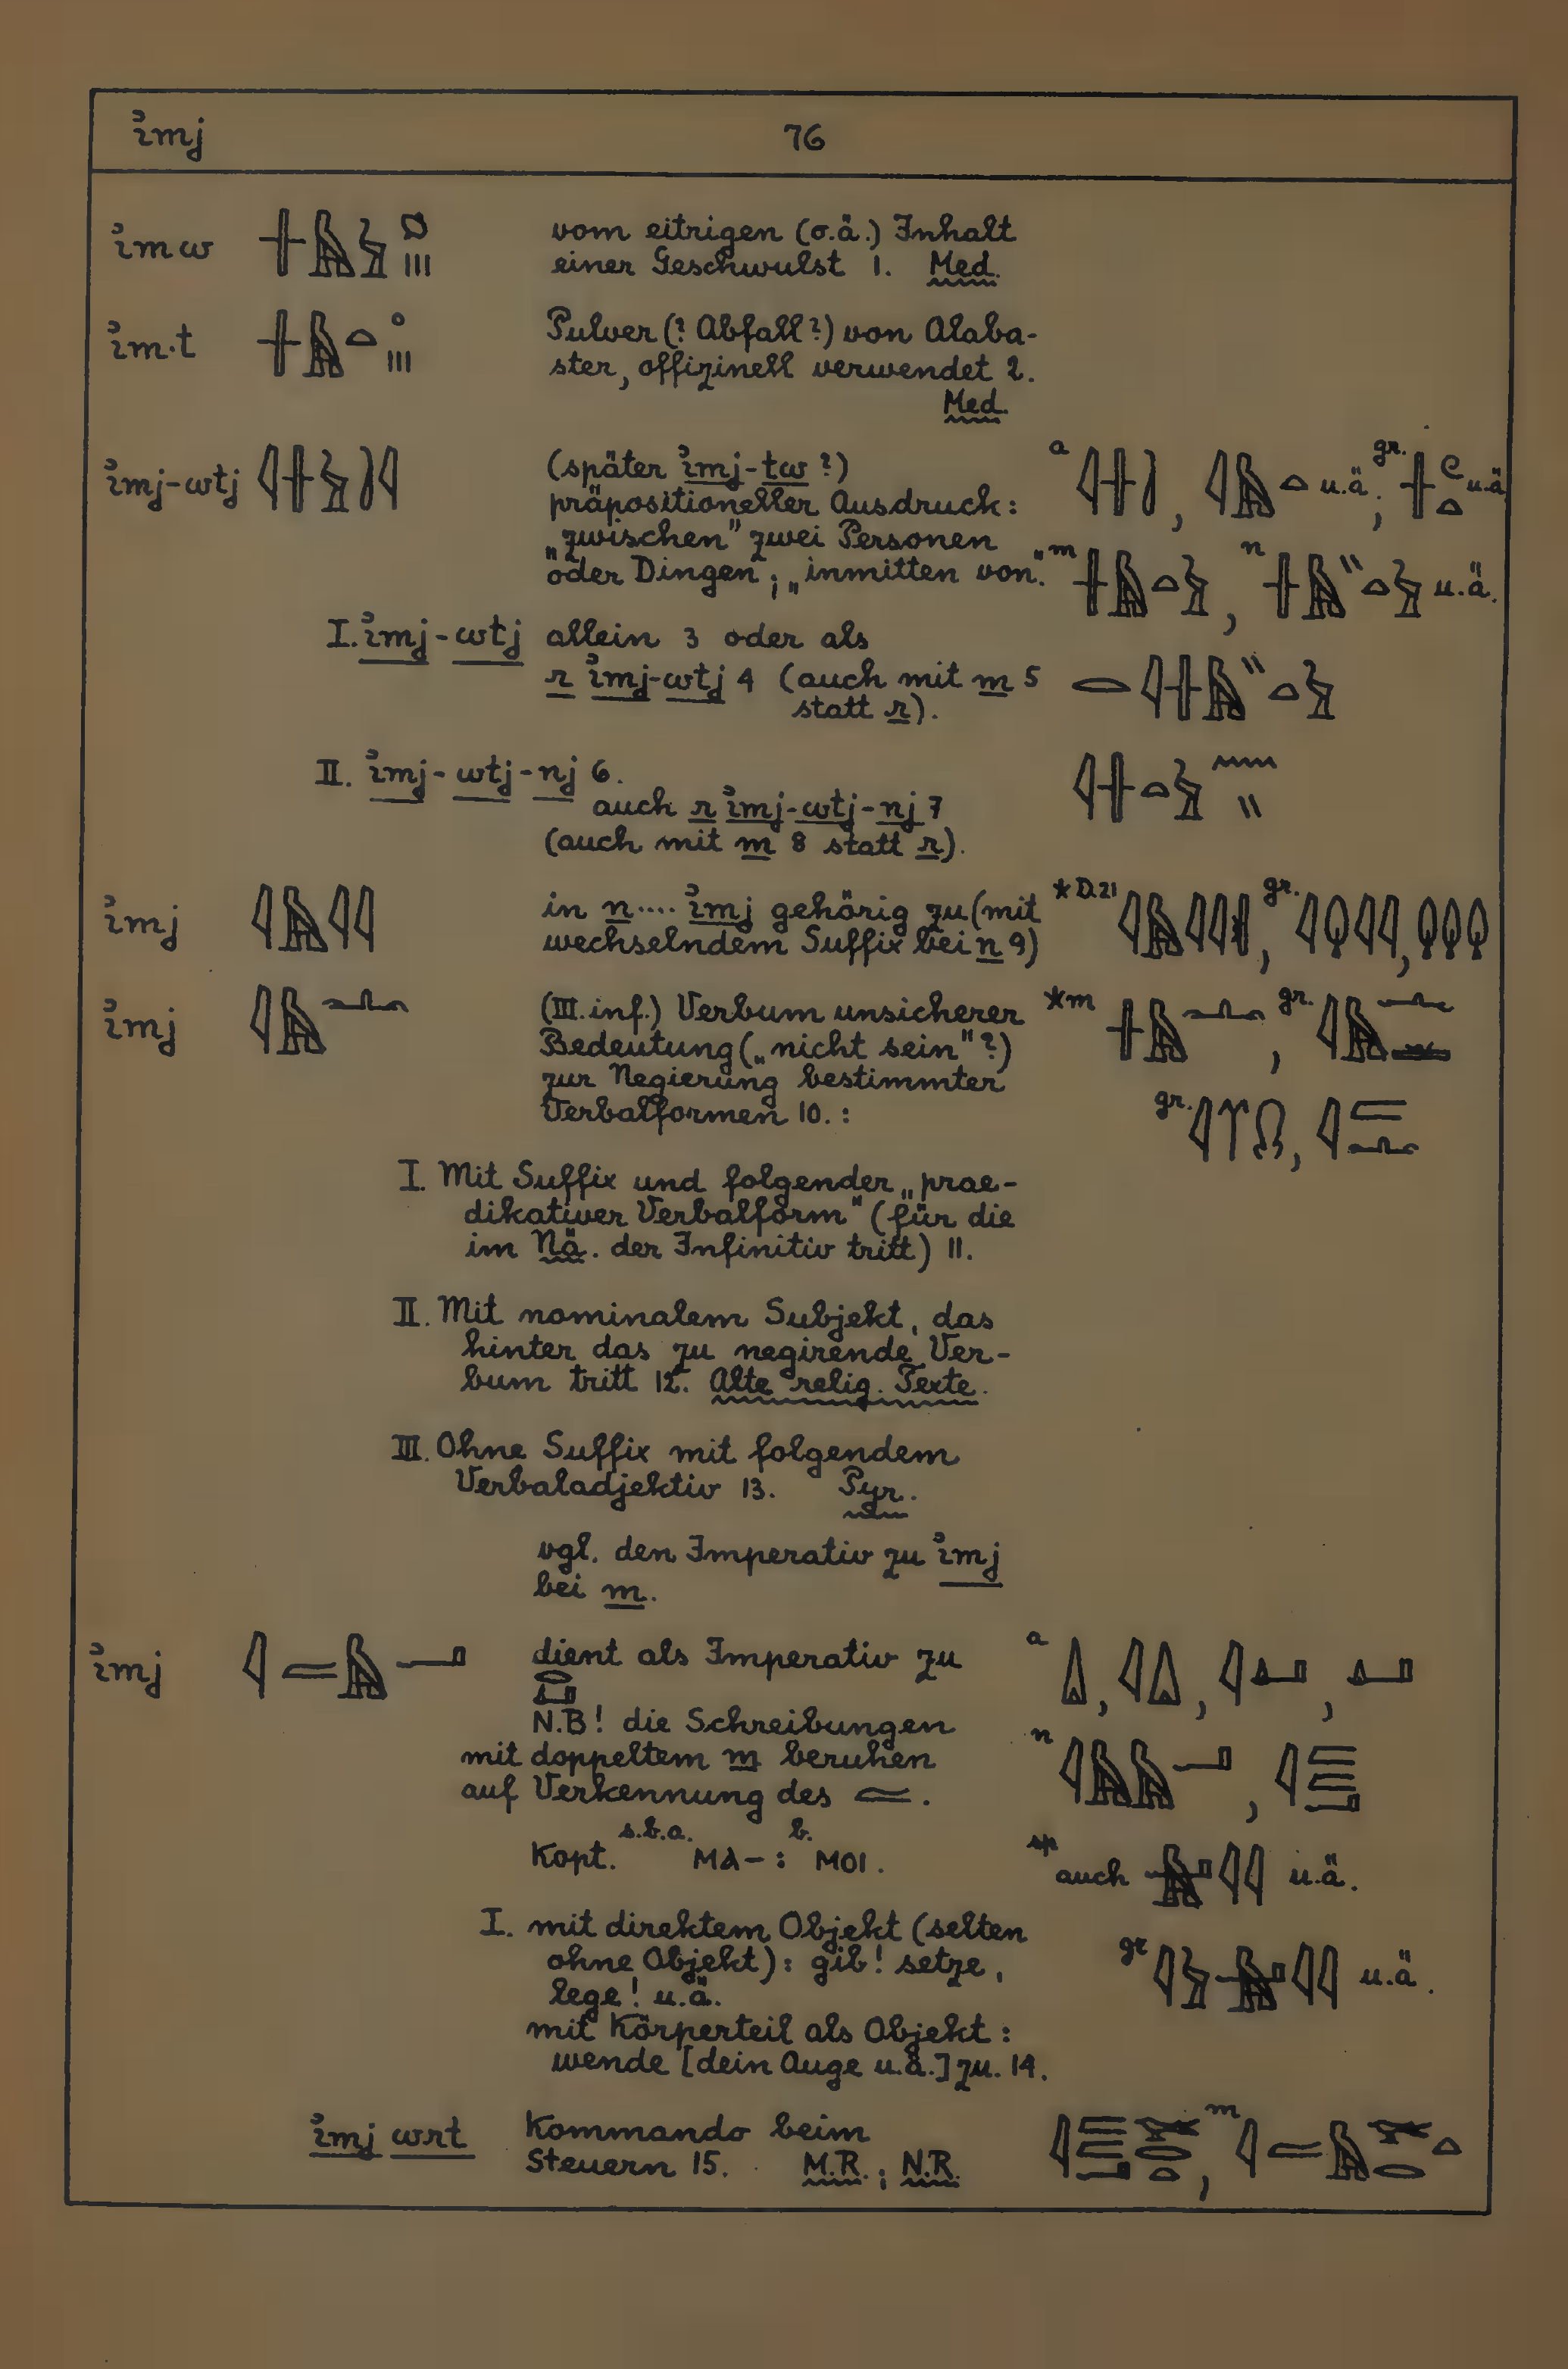 ꞽmj 76
ꞽmw 𓏶𓅓𓅱𓄹𓏥 vom eitrigen (o.ä.) Inhalt
einer Geschwulst 1. Med.
ꞽm·t 𓏶𓅓𓏏𓈒𓏥 Pulver (? Abfall?) von Alaba-
ster, offizinell verwendet 2.
Med.
ꞽmj-wtj 𓇋𓏶𓅱𓍘𓇋 (später ꞽmj-tw?)
präpositioneller Ausdruck:
„zwischen" zwei Personen
oder Dingen; „inmitten von".
a 𓇋𓏶𓍘, 𓇋𓅓𓏏 u.ä.; gr. 𓏶𓏲𓏏 u.ä
m 𓏶𓅓𓏏𓅱, n 𓏶𓅓𓏭𓏏𓅱 u.ä.
I. ꞽmj-wtj allein 3 oder als
r ꞽmj-wtj 4 (auch mit m 5 𓂋𓇋𓏶𓅓𓏭𓏏𓅱
statt r).
II. ꞽmj-wtj-nj 6. 𓇋𓏶𓏏𓅱𓈖𓏭
auch r ꞽmj-wtj-nj 7
(auch mit m 8 statt r).
ꞽmj 𓇋𓅓𓇋𓇋 in n···· ꞽmj gehörig zu (mit
wechselndem Suffix bei n 9)
*D.21 gr.
ꞽmj 𓇋𓅓𓂜 (III. inf.) Verbum unsicherer *m 𓏶𓅓𓂜, gr. 𓇋𓅓𓂜
Bedeutung („nicht sein"?)
zur Negierung bestimmter
Verbalformen 10.: gr.
I. Mit Suffix und folgender „prae-
dikativer Verbalform" (für die
im Nä. der Infinitiv tritt) 11.
II. Mit nominalem Subjekt, das
hinter das zu negirende Ver-
bum tritt 12. Alte relig. Texte.
III. Ohne Suffix mit folgendem
Verbaladjektiv 13. Pyr.
vgl. den Imperativ zu ꞽmj
bei m.
ꞽmj 𓇋𓐝𓅓𓂝 dient als Imperativ zu
𓂋𓂞
a 𓏙, 𓇋𓏙, 𓇋𓂞, 𓂞
N.B! die Schreibungen
mit doppeltem m beruhen
auf Verkennung des 𓐝.
n 𓇋𓅓𓅓𓂝, 𓇋𓐝𓐝𓂝
Kopt. s.b.a. ⲙⲁ-: b. ⲙⲟⲓ.
sp auch 𓅓𓂝𓇋𓇋 u.ä.
I. mit direktem Objekt (selten
ohne Objekt): gib! setze,
lege! u.ä.
gr 𓇋𓅱𓅓𓂝𓇋𓇋 u.ä.
mit Körperteil als Objekt:
wende [dein Auge u.ä.] zu. 14.
ꞽmj wrt Kommando beim
Steuern 15. M.R.; N.R.
𓇋𓐝𓐝𓂝𓅨𓂋𓏏, m 𓇋𓐝𓅓𓅨𓂋𓏏